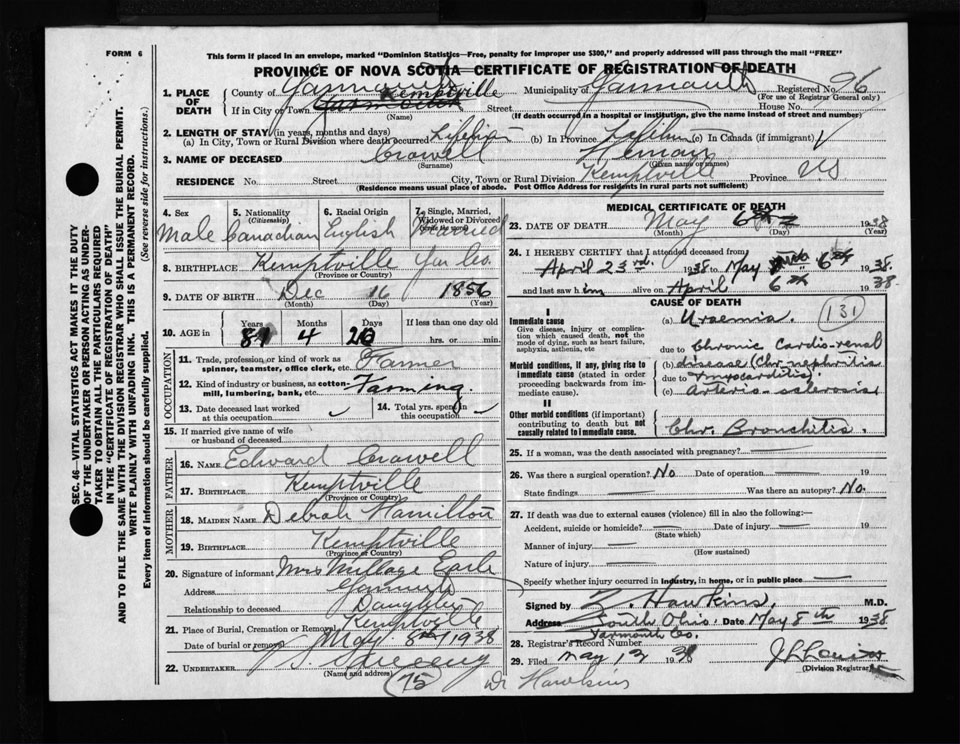 FORM 6
This form if placed in an envelope, marked "Dominion Statistics—Free, penalty for improper use $300," and properly addressed will pass through the mail "FREE"
PROVINCE OF NOVA SCOTIA—CERTIFICATE OF REGISTRATION OF DEATH
SEC. 46—VITAL STATISTICS ACT MAKES IT THE DUTY
OF THE UNDERTAKER OR PERSON ACTING AS UNDER-
TAKER TO OBTAIN ALL THE PARTICULARS REQUIRED
IN THE "CERTIFICATE OF REGISTRATION OF DEATH"
AND TO FILE THE SAME WITH THE DIVISION REGISTRAR WHO SHALL ISSUE THE BURIAL PERMIT.
WRITE PLAINLY WITH UNFADING INK. THIS IS A PERMANENT RECORD.
Every item of information should be carefully supplied. (See reverse side for instructions.)
1. PLACE OF DEATH
County of Yarmouth Municipality of Yarmouth Registered No. 96
(For use of Registrar General only)
If in City or Town Kemptville Street House No.
(Name) (If death occurred in a hospital or institution, give the name instead of street and number)
2. LENGTH OF STAY (in years, months and days)
(a) In City, Town or Rural Division where death occurred Lifetime (b) In Province Lifetime (c) In Canada (if immigrant)
3. NAME OF DECEASED Crowell Heman
(Surname) (Given name or names)
RESIDENCE No. Street City, Town or Rural Division Kemptville Province NS
(Residence means usual place of abode. Post Office Address for residents in rural parts not sufficient)
4. Sex Male
5. Nationality (Citizenship) Canadian
6. Racial Origin English
7. Single, Married, Widowed or Divorced Married
8. BIRTHPLACE Kemptville Yar Co.
(Province or Country)
9. DATE OF BIRTH Dec 16 1856
(Month) (Day) (Year)
10. AGE in Years Months Days If less than one day old
81 4 20 hrs. or min.
OCCUPATION
11. Trade, profession or kind of work as spinner, teamster, office clerk, etc. Farmer
12. Kind of industry or business, as cotton-mill, lumbering, bank, etc. Farming.
13. Date deceased last worked at this occupation
14. Total yrs. spent in this occupation
15. If married give name of wife or husband of deceased
FATHER
16. NAME Edward Crowell
17. BIRTHPLACE Kemptville
(Province or Country)
MOTHER
18. MAIDEN NAME Debrah Hamilton
19. BIRTHPLACE Kemptville
(Province or Country)
20. Signature of informant Mrs Millage Earle
Address Yarmouth
Relationship to deceased Daughter
21. Place of Burial, Cremation or Removal Kemptville
Date of burial or removal May 8th 1938
22. UNDERTAKER
(Name and address)
75
Dr Hawkins
MEDICAL CERTIFICATE OF DEATH
23. DATE OF DEATH May 6th 1938
(Month) (Day) (Year)
24. I HEREBY CERTIFY that I attended deceased from
April 23rd 1938 to May 6th 1938.
and last saw him alive on April 6th 1938.
CAUSE OF DEATH
I
Immediate cause
Give disease, injury or complication which caused death, not the mode of dying, such as heart failure, asphyxia, asthenia, etc
(a) Uraemia. 131
due to Chronic Cardio-renal
Morbid conditions, if any, giving rise to immediate cause (stated in order proceeding backwards from immediate cause).
(b) disease (Chr. nephritis
due to Myocarditis)
(c) arterio-sclerosis
II
Other morbid conditions (if important) contributing to death but not causally related to immediate cause.
Chr. Bronchitis.
25. If a woman, was the death associated with pregnancy?
26. Was there a surgical operation? No Date of operation 19
State findings Was there an autopsy? No.
27. If death was due to external causes (violence) fill in also the following:—
Accident, suicide or homicide? Date of injury 19
(State which)
Manner of injury
(How sustained)
Nature of injury
Specify whether injury occurred in industry, in home, or in public place
Signed by Z. Hawkins, M.D.
Address South Ohio. Date May 8th 1938
Yarmouth Co.
28. Registrar's Record Number
29. Filed May 13 1938
(Division Registrar)